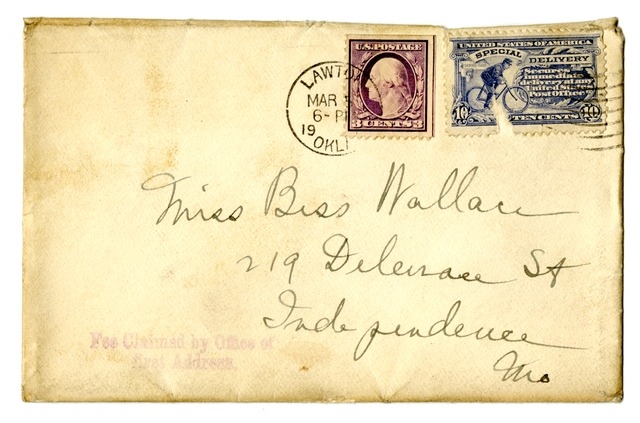 LAWTO
MAR
6-P
19
OKL
U.S. POSTAGE
3 CENTS 3
UNITED STATES OF AMERICA
SPECIAL DELIVERY
Secures
immediate
delivery at any
United States
Post Office.
10 TEN CENTS 10
Miss Bess Wallace
219 Delaware St
Independence
Mo
Fee Claimed by Office of
First Address.